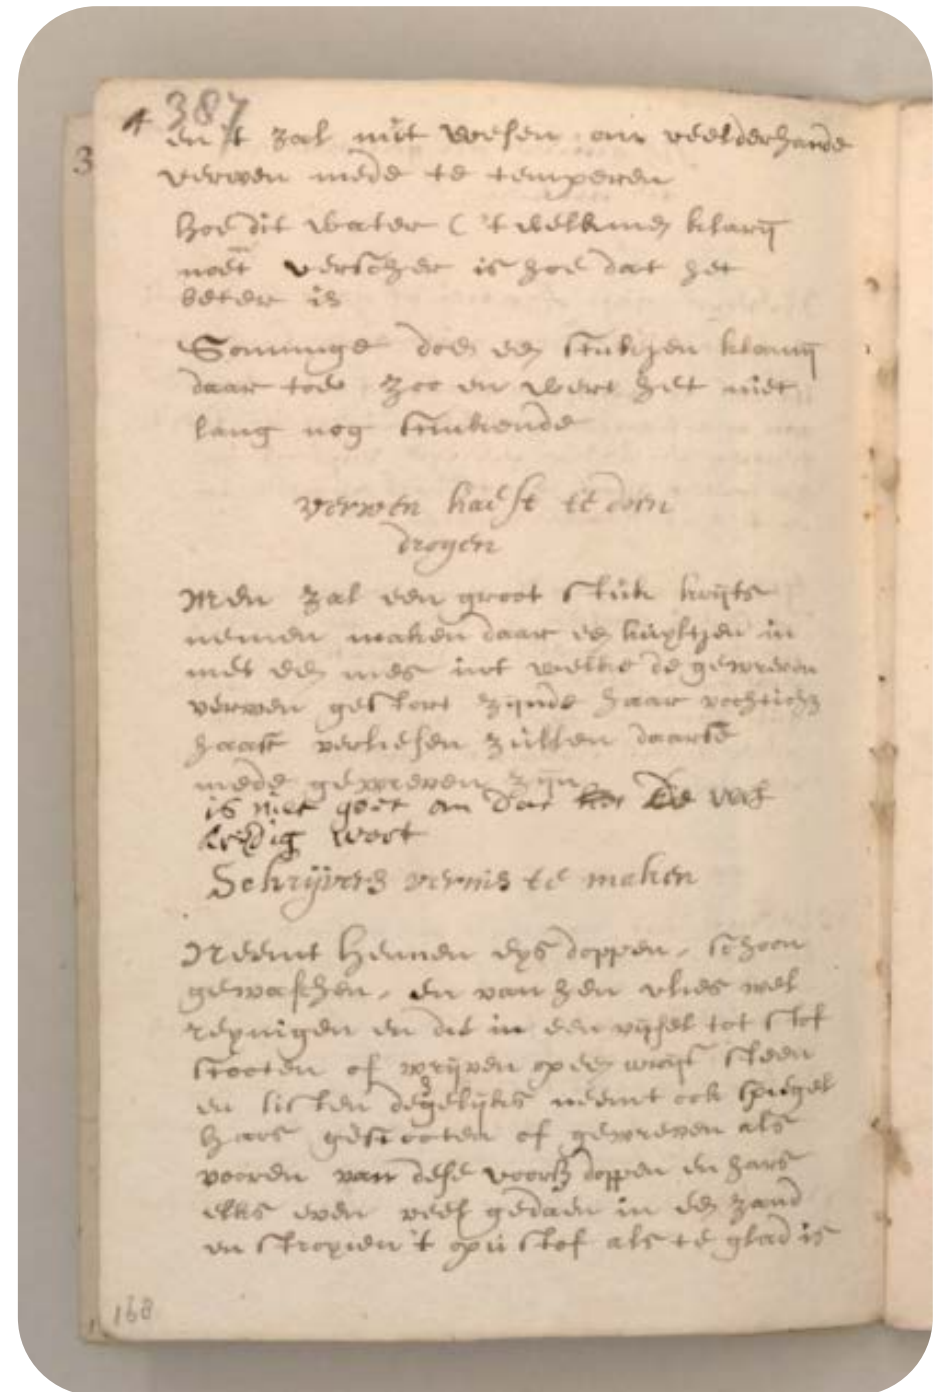 4 387
3
en 't zal nut wesen om veelderhande
verwen mede te temperen
hoe dit water ('t welk men klaren
moet verscher is hoe dat het
beter is
Sommige doen een stukjen
daar toe zoo en wert het niet
lang nog stinkende
verwen haest te doen
drogen
Men zal een groot stuk krijts
nemen maken daar een kuyltjen in
met een mes int welke de gewreven
verwen gestort zijnde haar
haast verliesen zullen daarse
mede gewreven zijn
is niet goet om dat de
wort
Schrijvers vernis te maken
Neemt hennen eys doppen, schoon
gewasschen, en van hen vlies wel
reynigen en dit in een vijsel tot stof
stooten of wrijven op een wrijf steen
en desgelijks neemt ook spiegel
hars gestooten of gewreven als
vooren van dese voorsz doppen en hars
elks even veel gedaen in een
en 't op u stof als te glad is
168